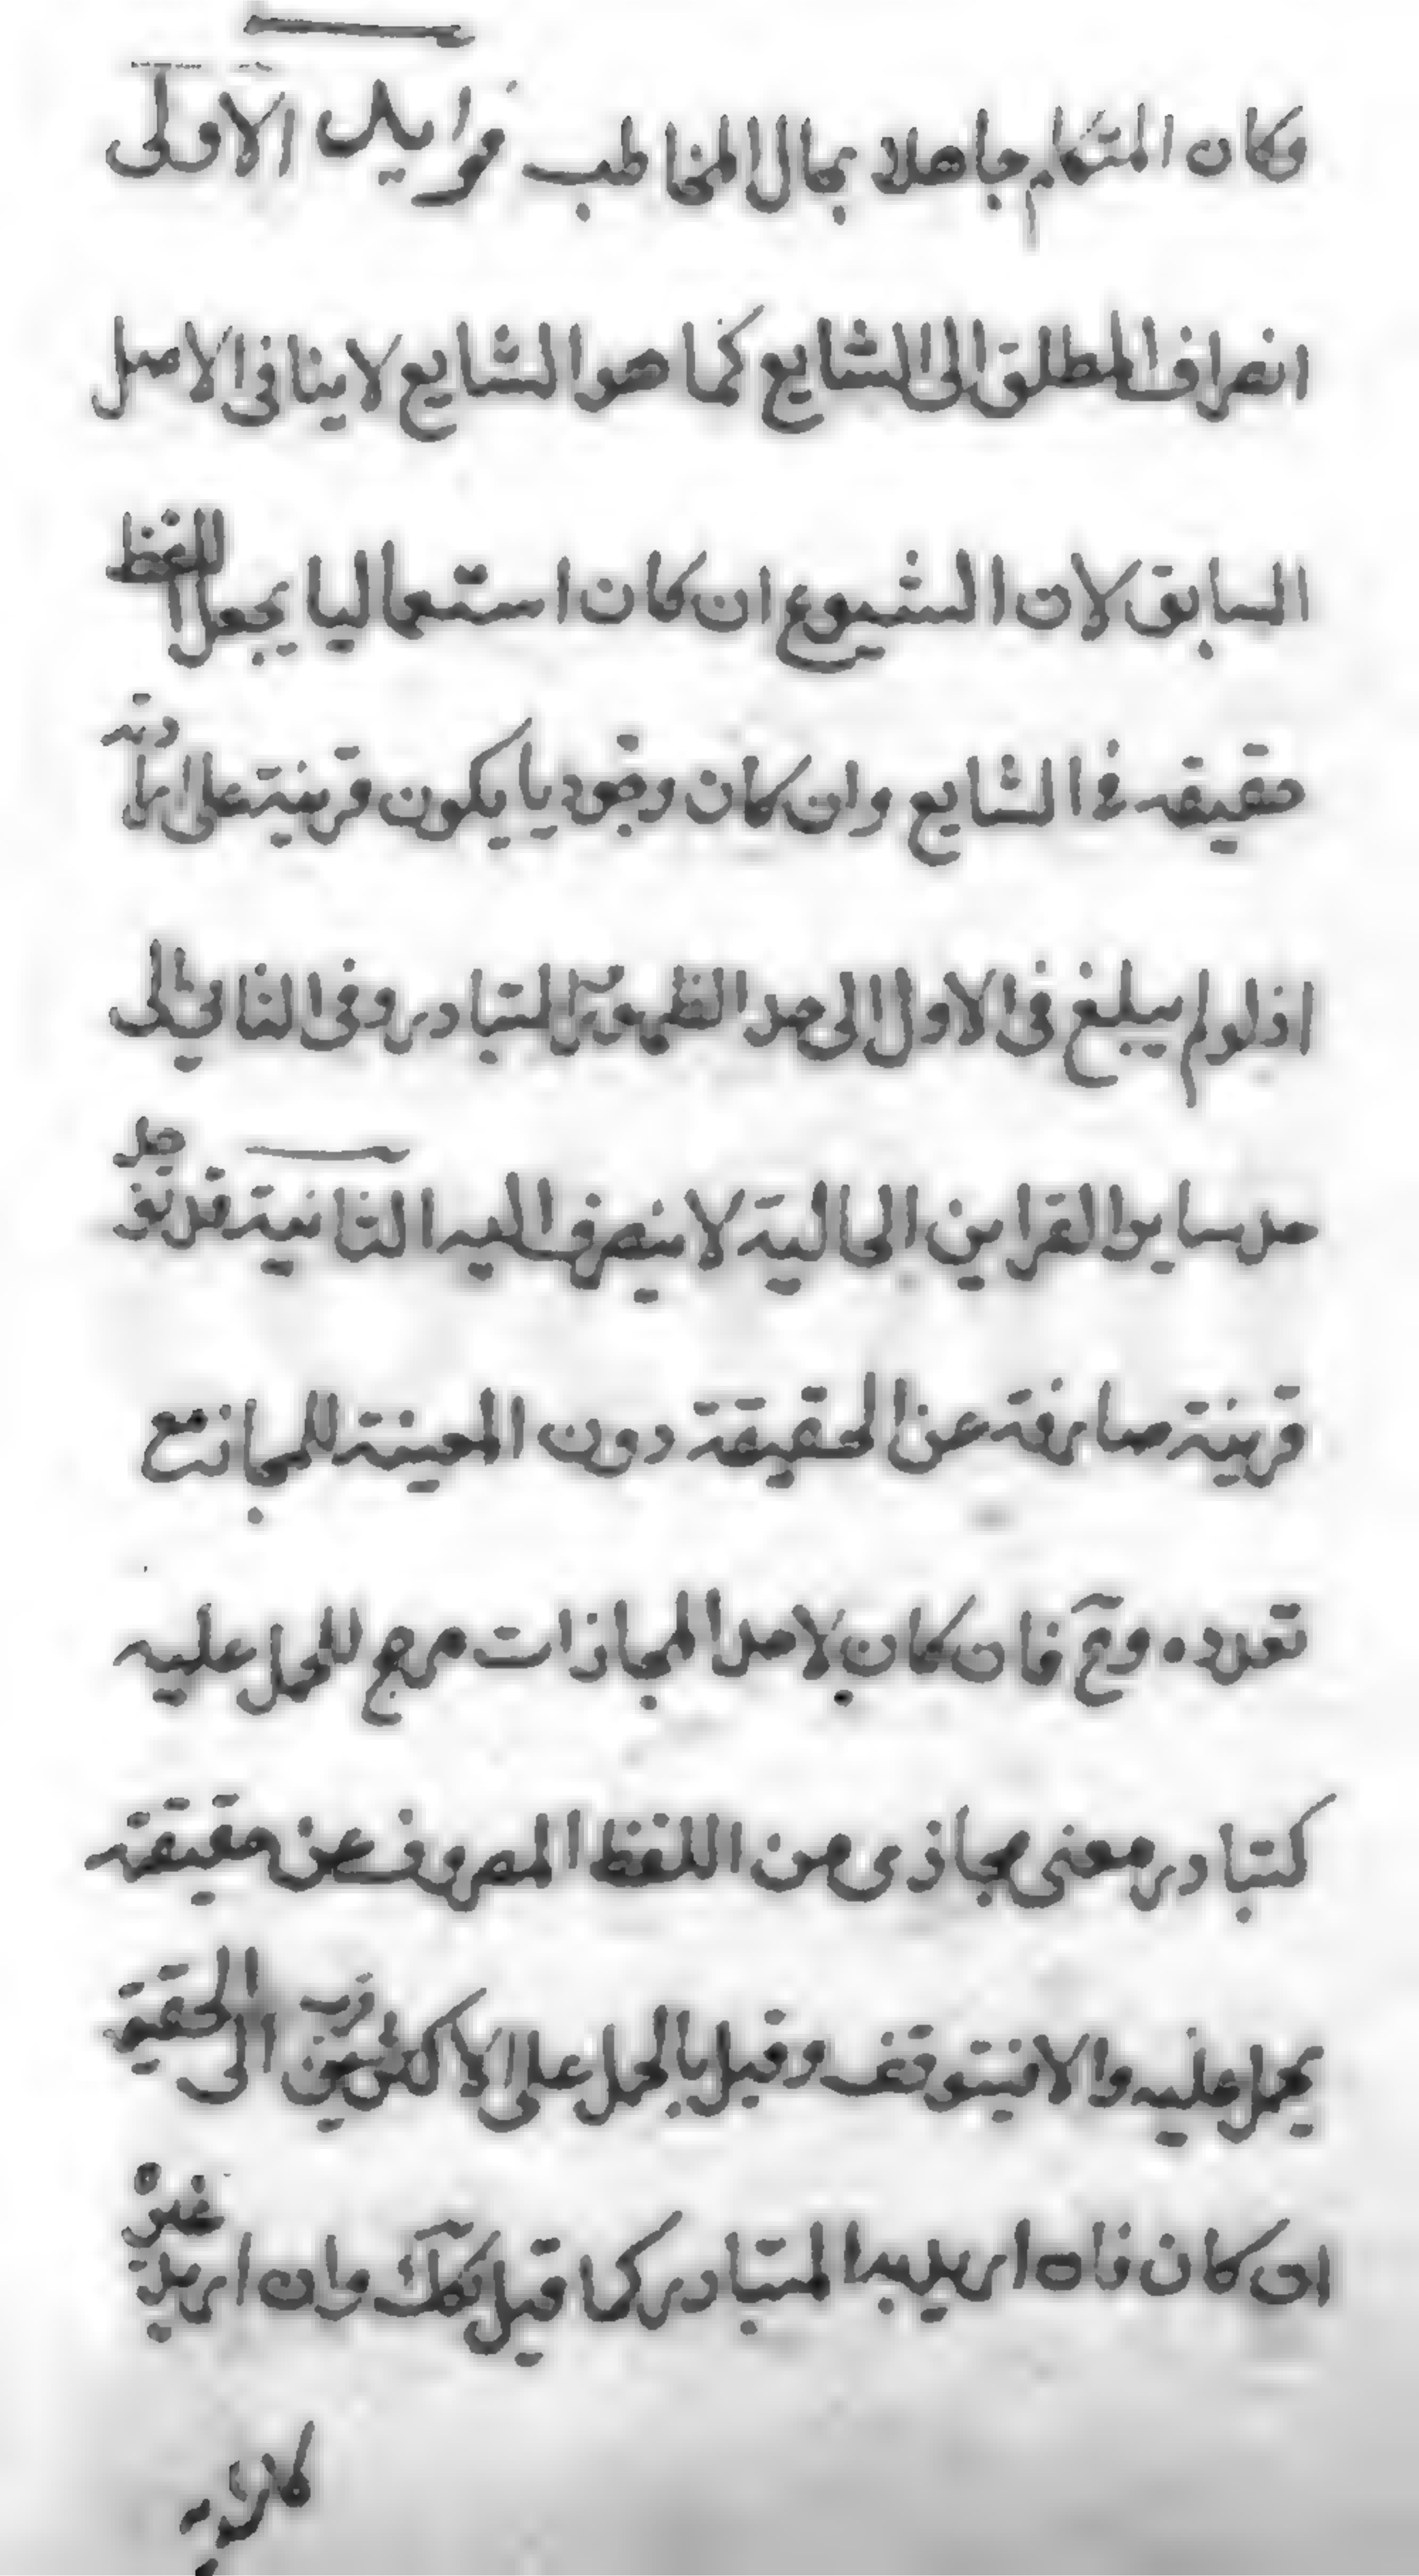 وكان المتكلم جاهلا بحال المخاطب فوايد الاولى
انصراف المطلق الى الشايع كما هو الشايع لا ينافى الاصل
السابق لان الشيوع ان كان استعماليا يجعل اللفظ
حقيقه فى الشايع وان كان وجوديا يكون قرينة على ارادته
اذ لو لم يبلغ فى الاول الى حد الظهور المتبادر وفى الثانى الى
حد ساير القراين الحالية لا ينصرف اليه الثانية قد توجد
قرينة صارفة عن الحقيقة دون المعينة للمجاز مع
تعدده وح فان كان لاحد المجازات مرجح للحمل عليه
كتبادر معنى مجازى من اللفظ المصروف عن حقيقته
يحمل عليه والا فيتوقف وقيل بالحمل على الاقرب الى الحقيقة
ان كان فان اريد به المتبادر كما قيل فكك وان اريد غيره
كالاقربية